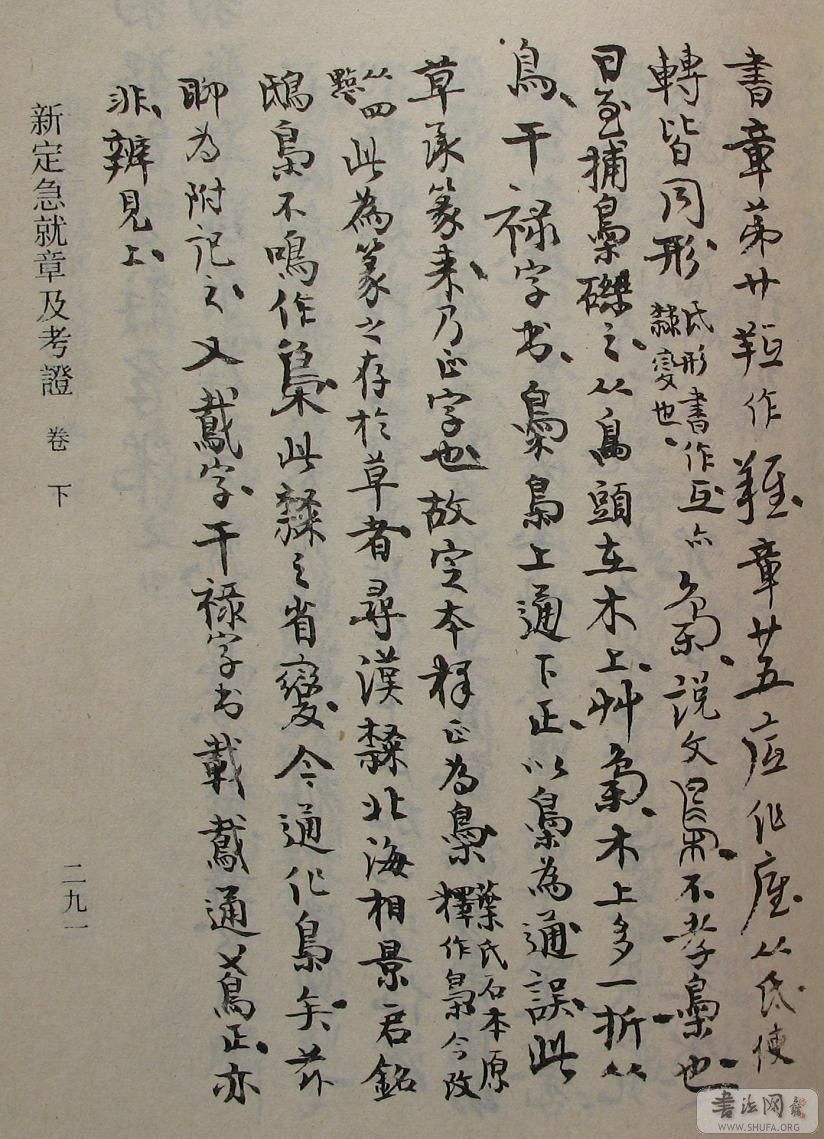 書章苐廿䩢作難、章廿五疷作㾛、从氐使
轉皆同形氐形書作互、亦隸變也、梟、説文𣡌、不孝梟也、
日至捕梟磔之、从鳥頭在木上、艸梟、木上多一折从
鳥、干禄字书、梟鳥上通下正、以梟為通誤、此
草承篆来、乃正字也、故定本释正為梟葉氏石本原釋作梟今改
从四點此為篆之存於草者尋漢隸北海相景君銘
鴟梟不鳴作梟、此隸之省變、今通作梟矣、并
聊為附記之、又鳶字、干禄字书載鳶通𫛢正、亦
非、辨見上、
新定急就章及考證 卷 下
二九一
書法网
WWW.SHUFA.ORG